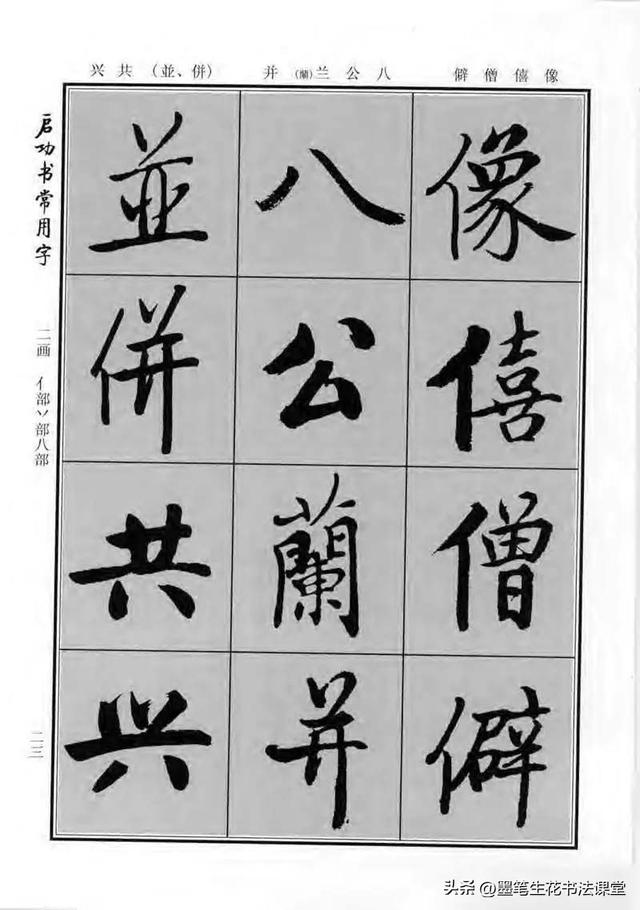 像僖僧僻 八公兰(蘭)并 (並、併)共兴
像僖僧僻
八公蘭并
並併共兴
启功书常用字
二画 亻部丷部八部
二三
头条 @墨笔生花书法课堂